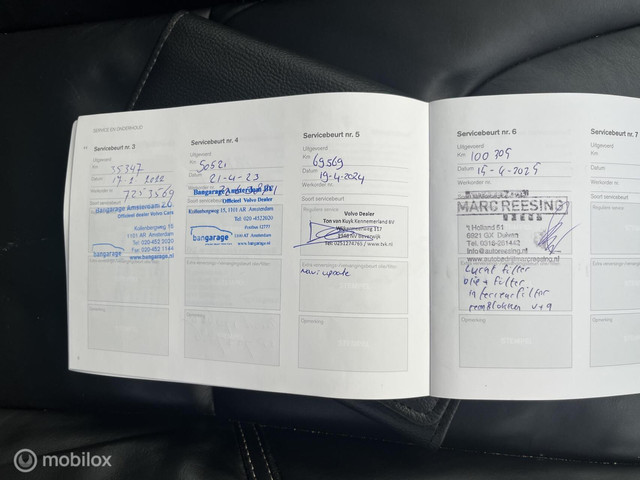 SERVICE EN ONDERHOUD
Servicebeurt nr. 3
Uitgevoerd
Km 35347
Datum
Werkorder nr. 7253569
Soort servicebeurt
Bangarage Amsterdam
Officieel dealer Volvo Cars
Kollenbergweg 15,
1101 AR Amsterdam
Tel: 020-452 2020
Fax: 020-452 1144
www.bangarage.nl
bangarage
Opmerking
Servicebeurt nr. 4
Uitgevoerd
Km
Datum 21-4-23
Werkorder nr.
Bangarage Amsterdam BV
Officieel Volvo Dealer
Kollenbergweg 15, 1101 AR Amsterdam
Tel 020-4522020
Postbus 12777
1100 AT Amsterdam
www.bangarage.nl
bangarage
Opmerking
Servicebeurt nr. 5
Uitgevoerd
Km 69569
Datum 19-4-2024
Werkorder nr.
Soort servicebeurt
Reguliere service
Volvo Dealer
Ton van Kuyk Kennemerland BV
Wijkermeerweg 317
1948 NV Beverwijk
tel: 0251274765 / www.tvk.nl
navi update
Opmerking
Servicebeurt nr. 6
Uitgevoerd
Km 100305
Datum 15-4-2025
Werkorder nr.
MARC REESING
't Holland 51
6921 GX Duiven
Tel. 0316-261442
info@autoreesing.nl
www.autobedrijfmarcreesing.nl
Lucht filter
olie + filter
interieurfilter
remblokken v+a
Opmerking
Servicebeurt nr. 7
Uitgevoerd
Km
Datum
Werkorder nr.
Soort servicebeurt
Reguliere service
Opmerking
mobilox